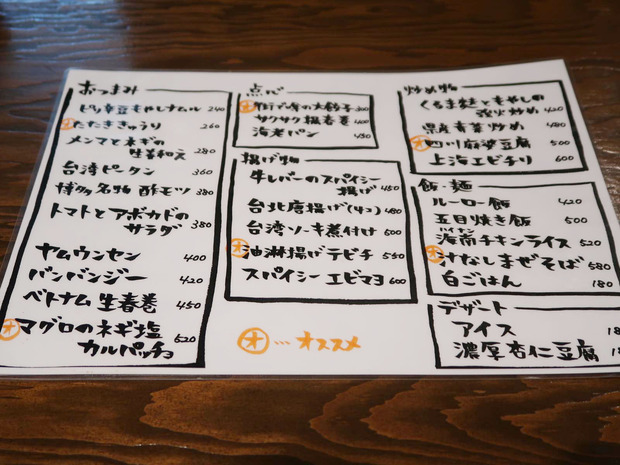 おつまみ
ピリ辛豆もやしナムル 240
オ たたききゅうり 260
メンマとネギの
生姜和え 280
台湾ピータン 360
博多名物 酢モツ 380
トマトとアボカドの
サラダ 380
ヤムウンセン 400
バンバンジー 420
ベトナム生春巻 450
オ マグロのネギ塩
カルパッチョ 520
点心
オ 街で噂の大餃子 300
サクサク揚春巻 400
海老パン 450
揚げ物
牛レバーのスパイシー
揚げ 450
台北唐揚げ(4コ) 480
台湾ソーキ煮付け 500
オ 油淋揚げテビチ 550
スパイシーエビマヨ 600
オ…オススメ
炒め物
くるま麩ともやしの
強火炒め 420
県産青菜炒め 480
オ 四川麻婆豆腐 500
上海エビチリ 600
飯・麺
ルーロー飯 420
五目焼き飯 500
ハイナン
海南チキンライス 520
オ 汁なしまぜそば 580
白ごはん 180
デザート
アイス
濃厚杏仁豆腐